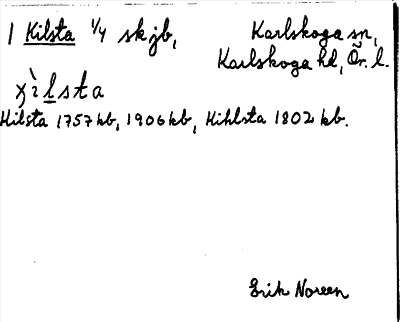 1 Kilsta 1/4 skjb, Karlskoga sn,
Karlskoga hd, Ör. l.
χìlsta
Kilsta 1757 kb, 1906 kb, Kihlsta 1802 kb.
Erik Noreen